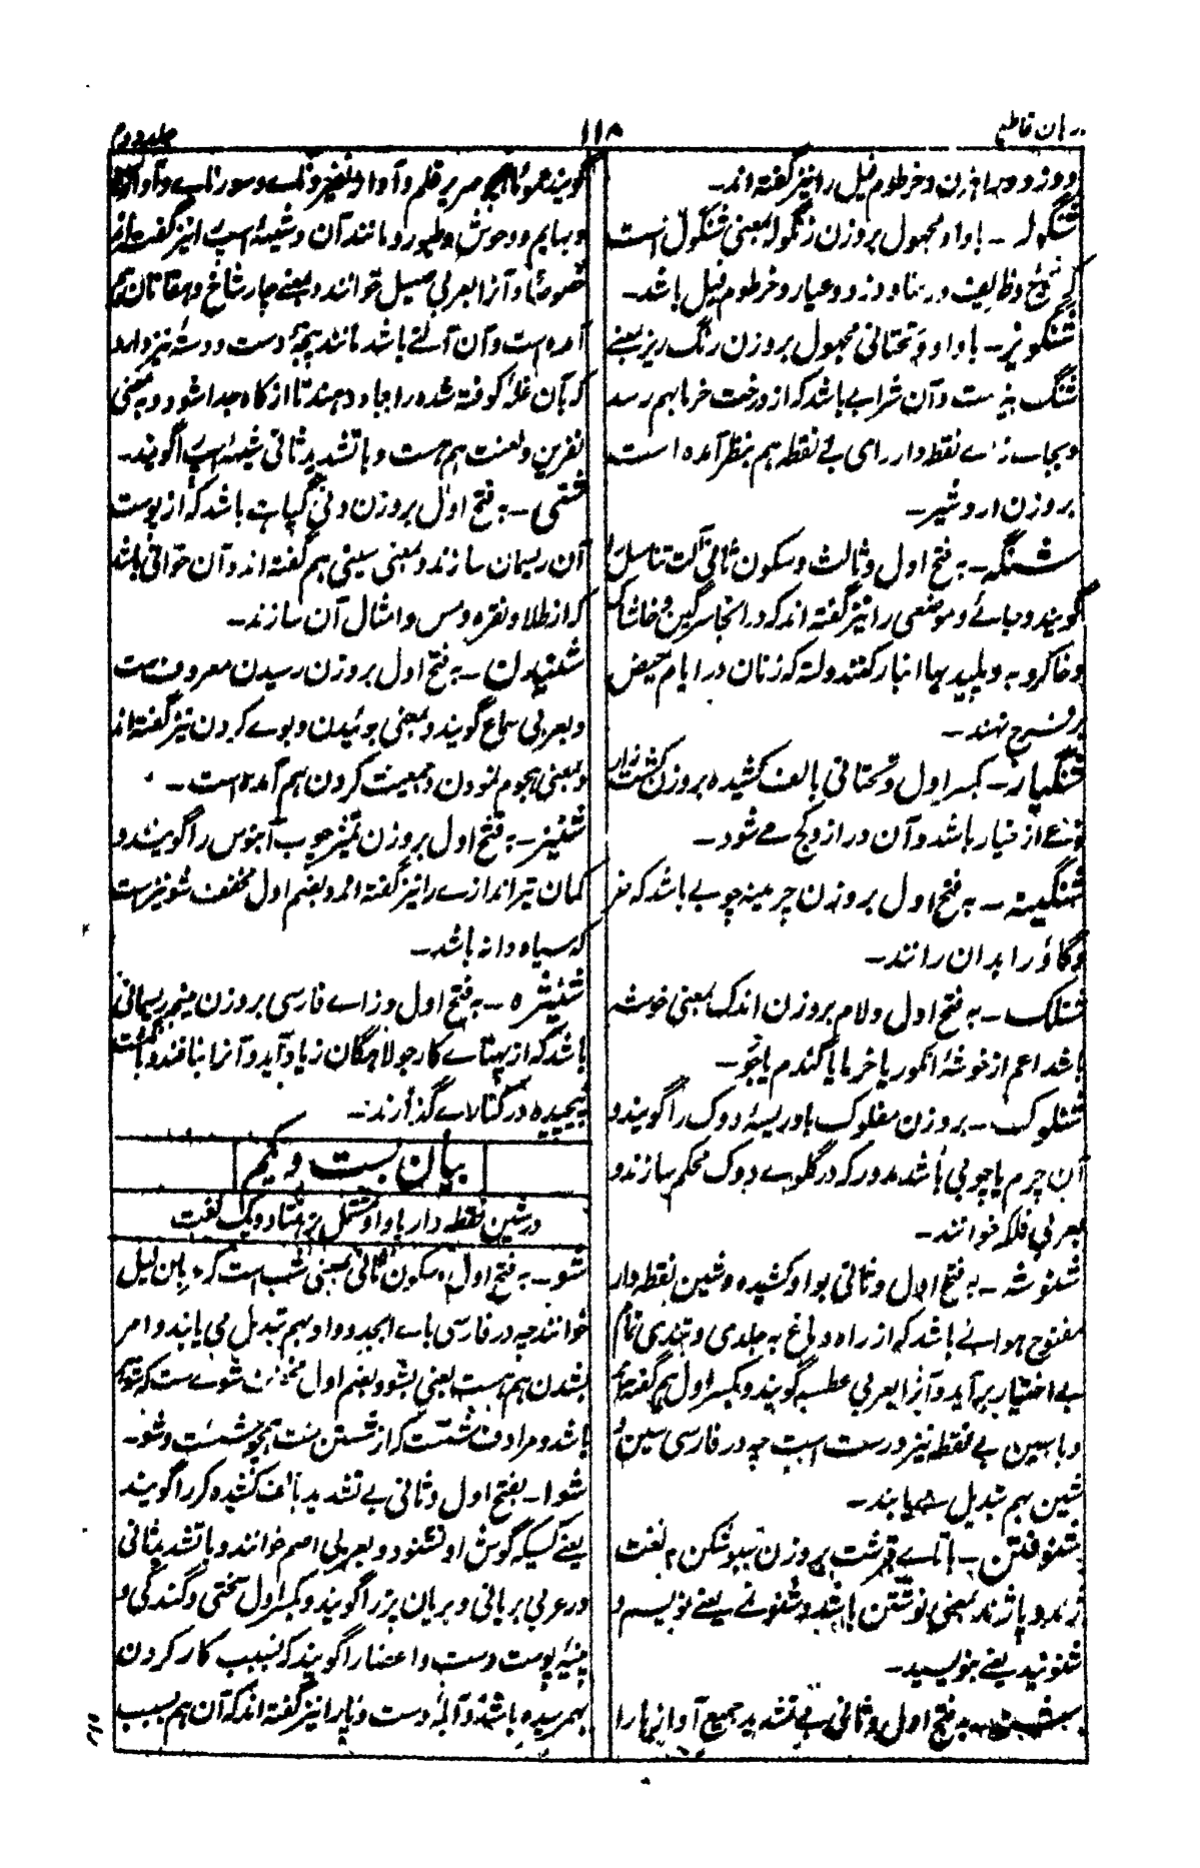 برهان قاطع
۱۱۸
جلد دوم
و دزد و راهزن و خرطوم فیل را نیز گفته اند۔
شنگولہ ۔ با واو مجہول بروزن زنگولہ بمعنی شنگول است
کہ شوخ و ظریف و رعنا و دزد و عیار و خرطوم فیل باشد۔
شنگویز ۔ با واو و تحتانی مجہول بروزن رنگ ریز بمعنے
شنگ بیز ست و آن شرابے باشد کہ از درخت خرما بہم رسد
و بجاے زاے نقطہ دار رای بے نقطہ ہم بنظر آمدہ است
بروزن اردشیر۔
شنگہ ۔ بہ فتح اول و ثالث و سکون ثانی آلت تناسل را
گویند و جائے و موضعی را نیز گفته اند کہ در انجا سرگین و خاشاک
و خاکروبہ و پلیدیہا انبار کنند و لتہ کہ زنان در ایام حیض
بر فرج نہند۔
شنگیار ۔ بکسر اول و تحتانی بالف کشیدہ بروزن کشت زار
نوعے از خیار باشد و آن دراز و کج مے شود۔
شنگینہ ۔ بہ فتح اول بروزن چرمینہ چوبے باشد کہ خر
و گاؤ را بدان رانند۔
شنلک ۔ بہ فتح اول و لام بروزن اندک بمعنی خوشہ
باشد اعم از خوشۂ انگور یا خرما یا گندم یا جو۔
شنلوک ۔ بروزن مفلوک بادریسۂ دوک را گویند و
آن چرم یا چوبی باشد مدور کہ در گلوے دوک محکم سازند و
بعربی فلکہ خوانند۔
شنوشہ ۔ بہ فتح اول و ثانی بواو کشیدہ و شین نقطہ دار
مفتوح ہوائے باشد کہ از راہ دماغ بہ جلدی و تندی تمام
بے اختیار بر آید و آنرا بعربی عطسہ گویند و بکسر اول ہم گفته اند
و با سین بے نقطہ نیز درست است چہ در فارسی سین و
شین بہم تبدیل مے یابند۔
شنوفتن ۔ با تاے قرشت بروزن نیوشکن بہ لغت
ژند و پاژند بمعنی نوشتن باشد و شنونے یعنے نویسم و
شنونید یعنے بنویسید۔
بہ فتح اول و ثانی بے تشدید جمیع آوازہا را
گویند عموماً ہمچو صریر قلم و آواز نفیر و ناے و سورناے و آواز
و بہایم و وحوش و طیور و مانند آن و شیہۂ اسپ را نیز گفته اند
خصوصاً و آنرا بعربی صہیل خوانند و بمعنے چار شاخ دہقانان ہم
آمدہ است و آن آلتے باشد مانند پنجۂ دست و دستۂ نیز دارد
کہ بآن غلۂ کوفته شدہ را بباد دہند تا از کاہ جدا شود و بمعنی
نفرین و لعنت ہم ہست و با تشدید ثانی شیہۂ اسپ را گویند۔
شنی ۔ بہ فتح اول بروزن دنی گیاہے باشد کہ از پوست
آن ریسمان سازند و بمعنی سینی ہم گفته اند و آن خوانی باشد
کہ از طلا و نقرہ و مس و امثال آن سازند۔
شنیدن ۔ بہ فتح اول بروزن رسیدن معروفست
و بعربی سماع گویند و بمعنی بوئیدن و بوے کردن نیز گفته اند
و بمعنی ہجوم نمودن و جمعیت کردن ہم آمدہ است ۔
شنیز ۔ بہ فتح اول بروزن تمیز چوب آبنوس را گویند و
کمان تیراندازے را نیز گفته اند و بضم اول مخفف شونیزست
کہ سیاہ دانہ باشد۔
شنیثرہ ۔ بہ فتح اول و زاے فارسی بروزن منیجہ ریسمانی
باشد کہ از پہناے کار جولاہگان زیاد آید و آنرا نبافند و بانگشت
پیچیدہ در کنارے گذارند۔
بیان بیست و یکم
در شین نقطہ دار با واو مشتمل بر ہشتاد و یک لغت
شو ۔ بہ فتح اول و سکون ثانی بمعنی شب است کہ بعربی لیل
خوانند چہ در فارسی باے ابجد و واو بہم تبدیل می یابند و امر
بشدن ہم ہست یعنی بشو و بضم اول مخفف شوے ست کہ شوہر
باشد و مرادف شست کہ از شستن ست ہمچو شست و شو۔
شوا ۔ بفتح اول و ثانی بے تشدید بالف کشیدہ کر را گویند
یعنے کسیکہ گوش او نشنود و بعربی اصم خوانند و با تشدید ثانی
در عربی بریانی و بریان پز را گویند و بکسر اول سختی و گندگی و
پینۂ پوست دست و اعضا را گویند کہ بسبب کار کردن
بہمرسیدہ باشد و آبلۂ دست و پا را نیز گفته اند کہ آن ہم بسبب